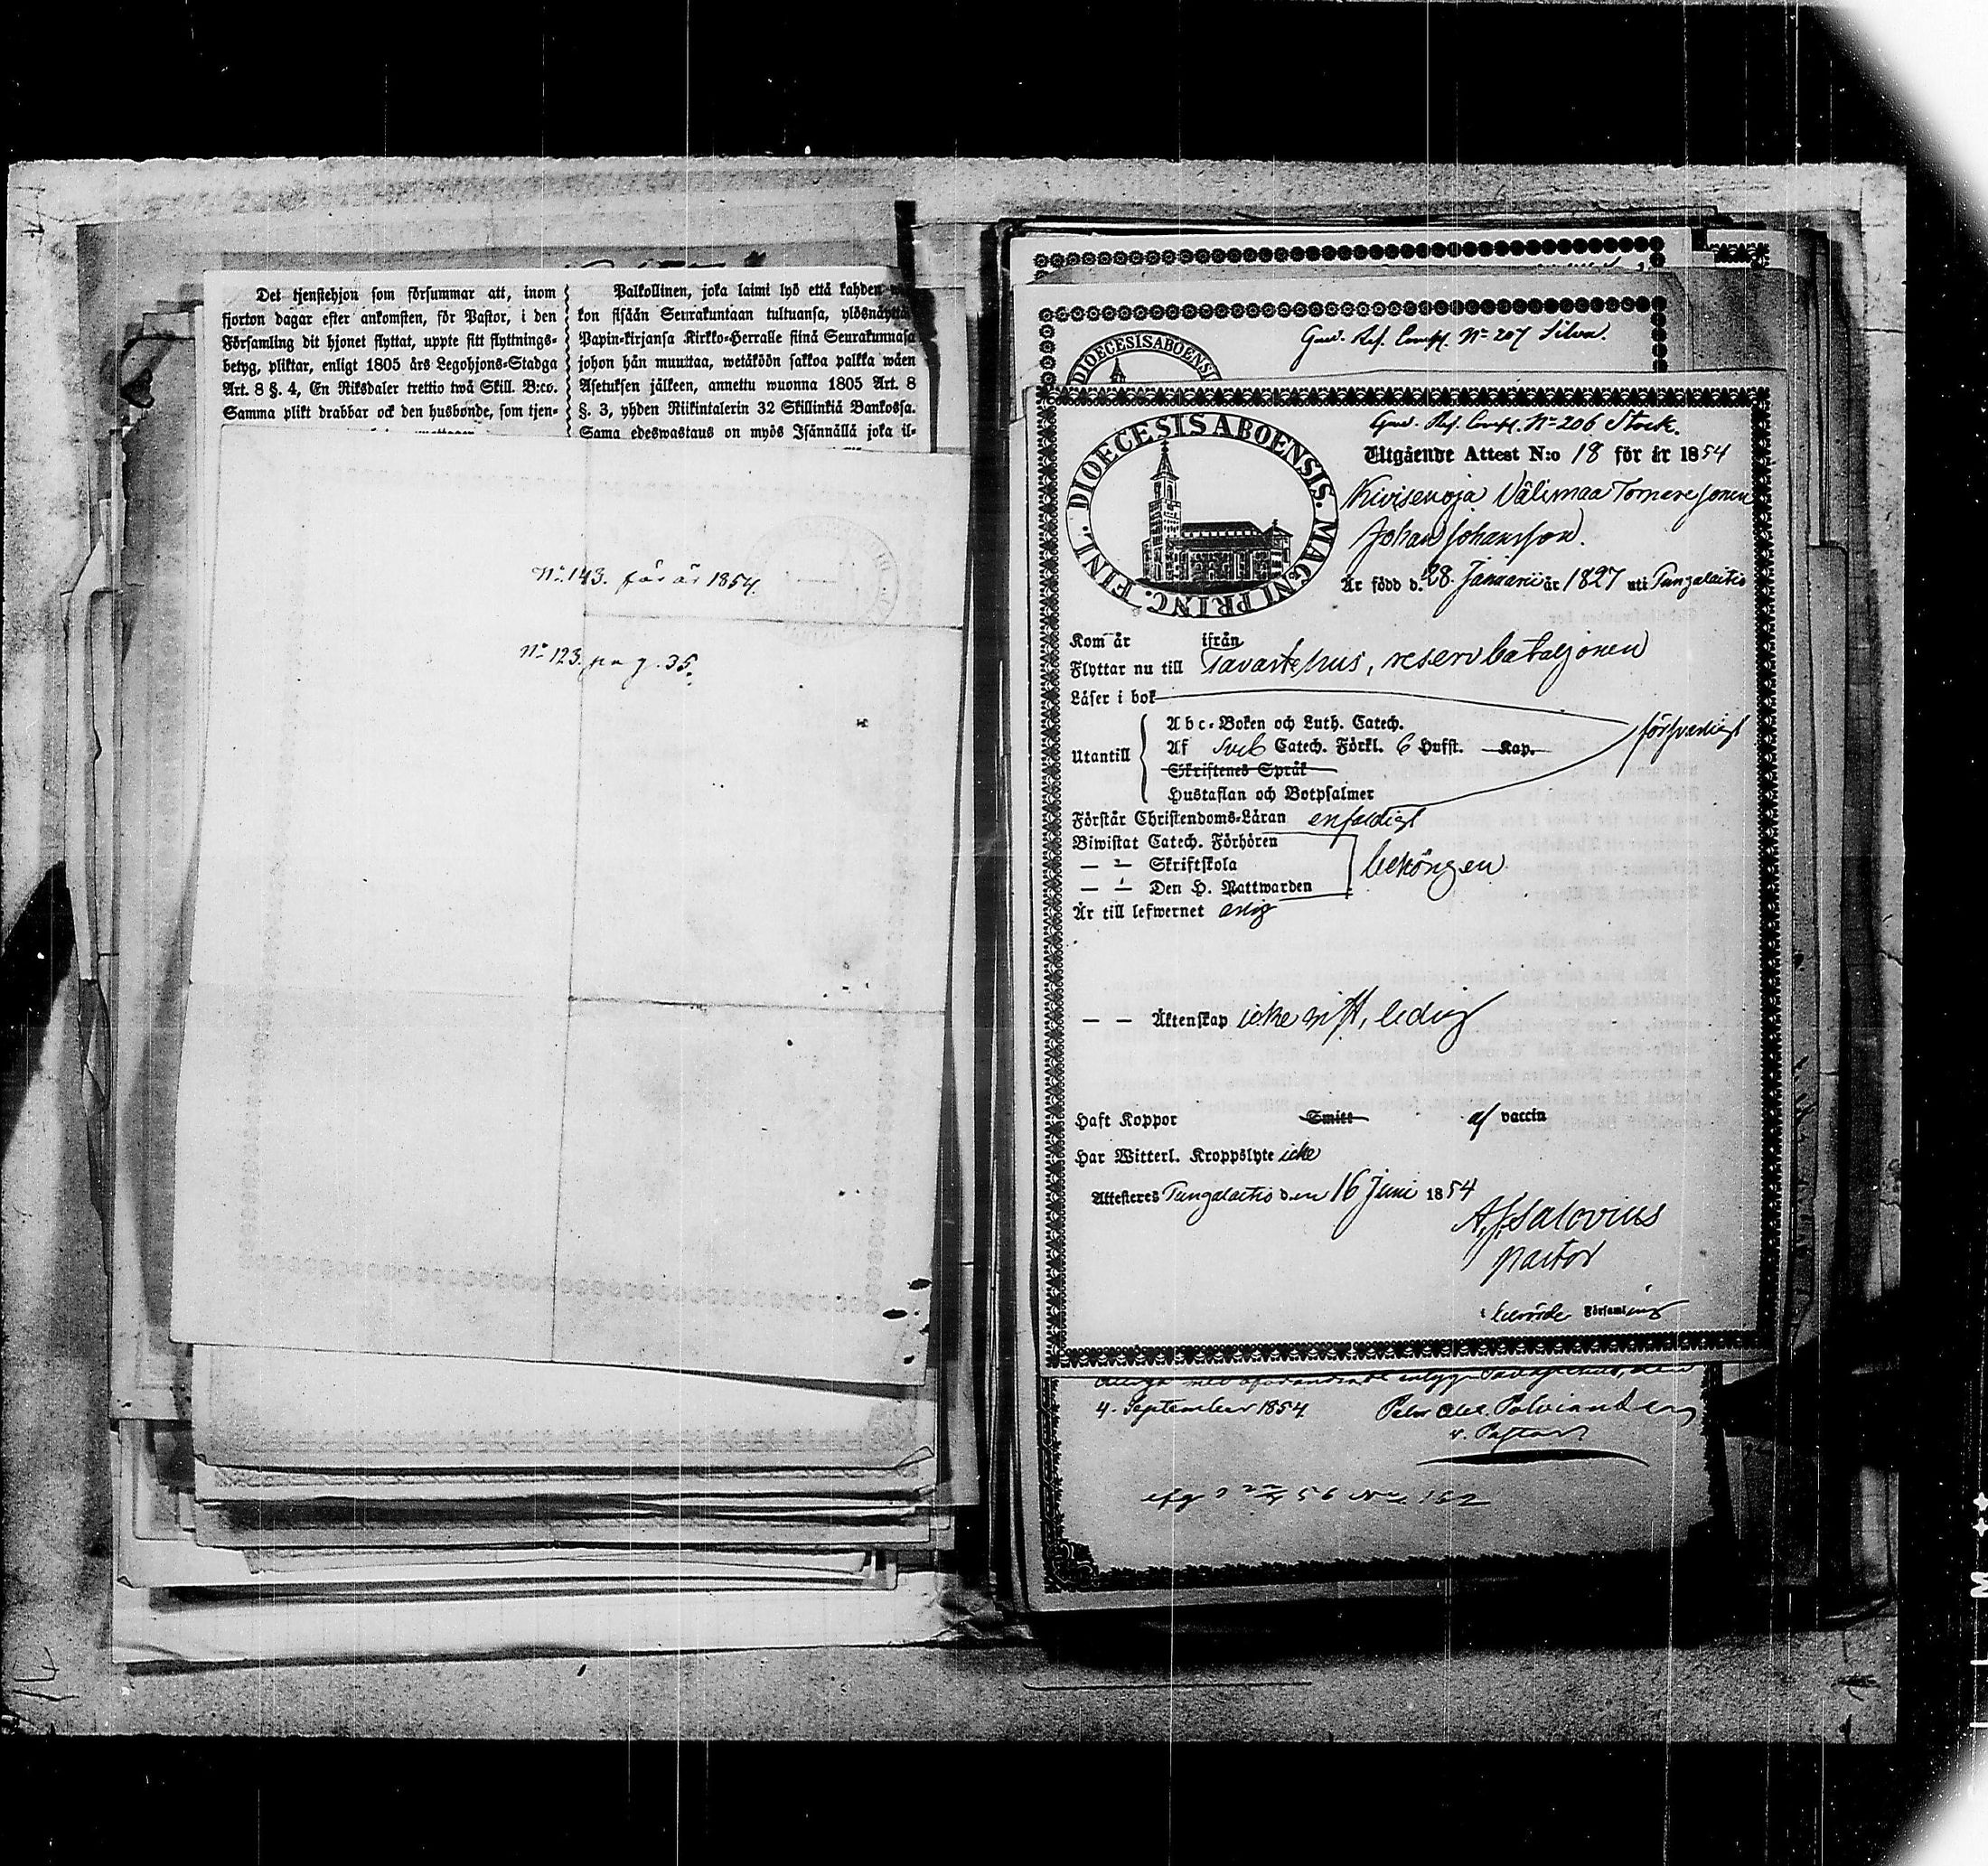 Det tjenstehjon som försummar att, inom
fjorton dagar efter ankomsten, för Pastor, i den
Församling dit hjonet flyttat, uppte sitt flyttnings-
betyg, pliktar, enligt 1805 års Legohjons-Stadga
Art. 8 §. 4, En Riksdaler trettio twå Skill. B:co.
Samma plikt drabbar ock den husbonde, som tjen-
Palkollinen, joka laimi lyö että kahden
kon sisään Seurakuntaan tultuansa, ylösnäyttä
Papin-kirjansa Kirkko-Herralle siinä Seurakunnasa
johon hän muuttaa, wetäköön sakkoa palkka wäen
Asetuksen jälkeen, annettu wuonna 1805 Art. 8
§. 3, yhden Riikintalerin 32 Skillinkiä Bankossa.
Sama edeswastaus on myös Isännällä joka il-
No 143. för år 1854.
No 123. pag. 35.
DIOECESIS ABOENSIS
Gard. Res. Comp. No 207 Silva.
DIOECESIS ABOENSIS. MAGNI PRINC. FINL.
Gard. Res. Comp. No 206 Stock.
Utgående Attest N:o 18 för år 1854
Välimaa
Johan Johansson.
Är född d. 28 Januarii år 1827 uti Pungalaitio
Kom år ifrån
Flyttar nu till Tavastehus, reservbataljonen
Läser i bok
Utantill
Abc-Boken och Luth. Catech.
Af Sveb Catech. Förkl. 6 Hufst. Kap.
Skriftenes Språk
Hustaflan och Botpsalmer
försvarligt
Förstår Christendoms-Läran enfaldigt
Biwistat Catech. Förhören
— " — Skriftskola
— " — Den H. Nattwarden
behörigen
Är till lefwernet ärlig
— — Äktenskap icke gift, ledig
Haft Koppor Smitt af vaccin
Har Witterl. Kroppslyte icke
Attesteres Pungalaitio den 16 Juni 1854
A. J. Salovius
pastor
i berörde Församling
4. September 1854
v. Pastor